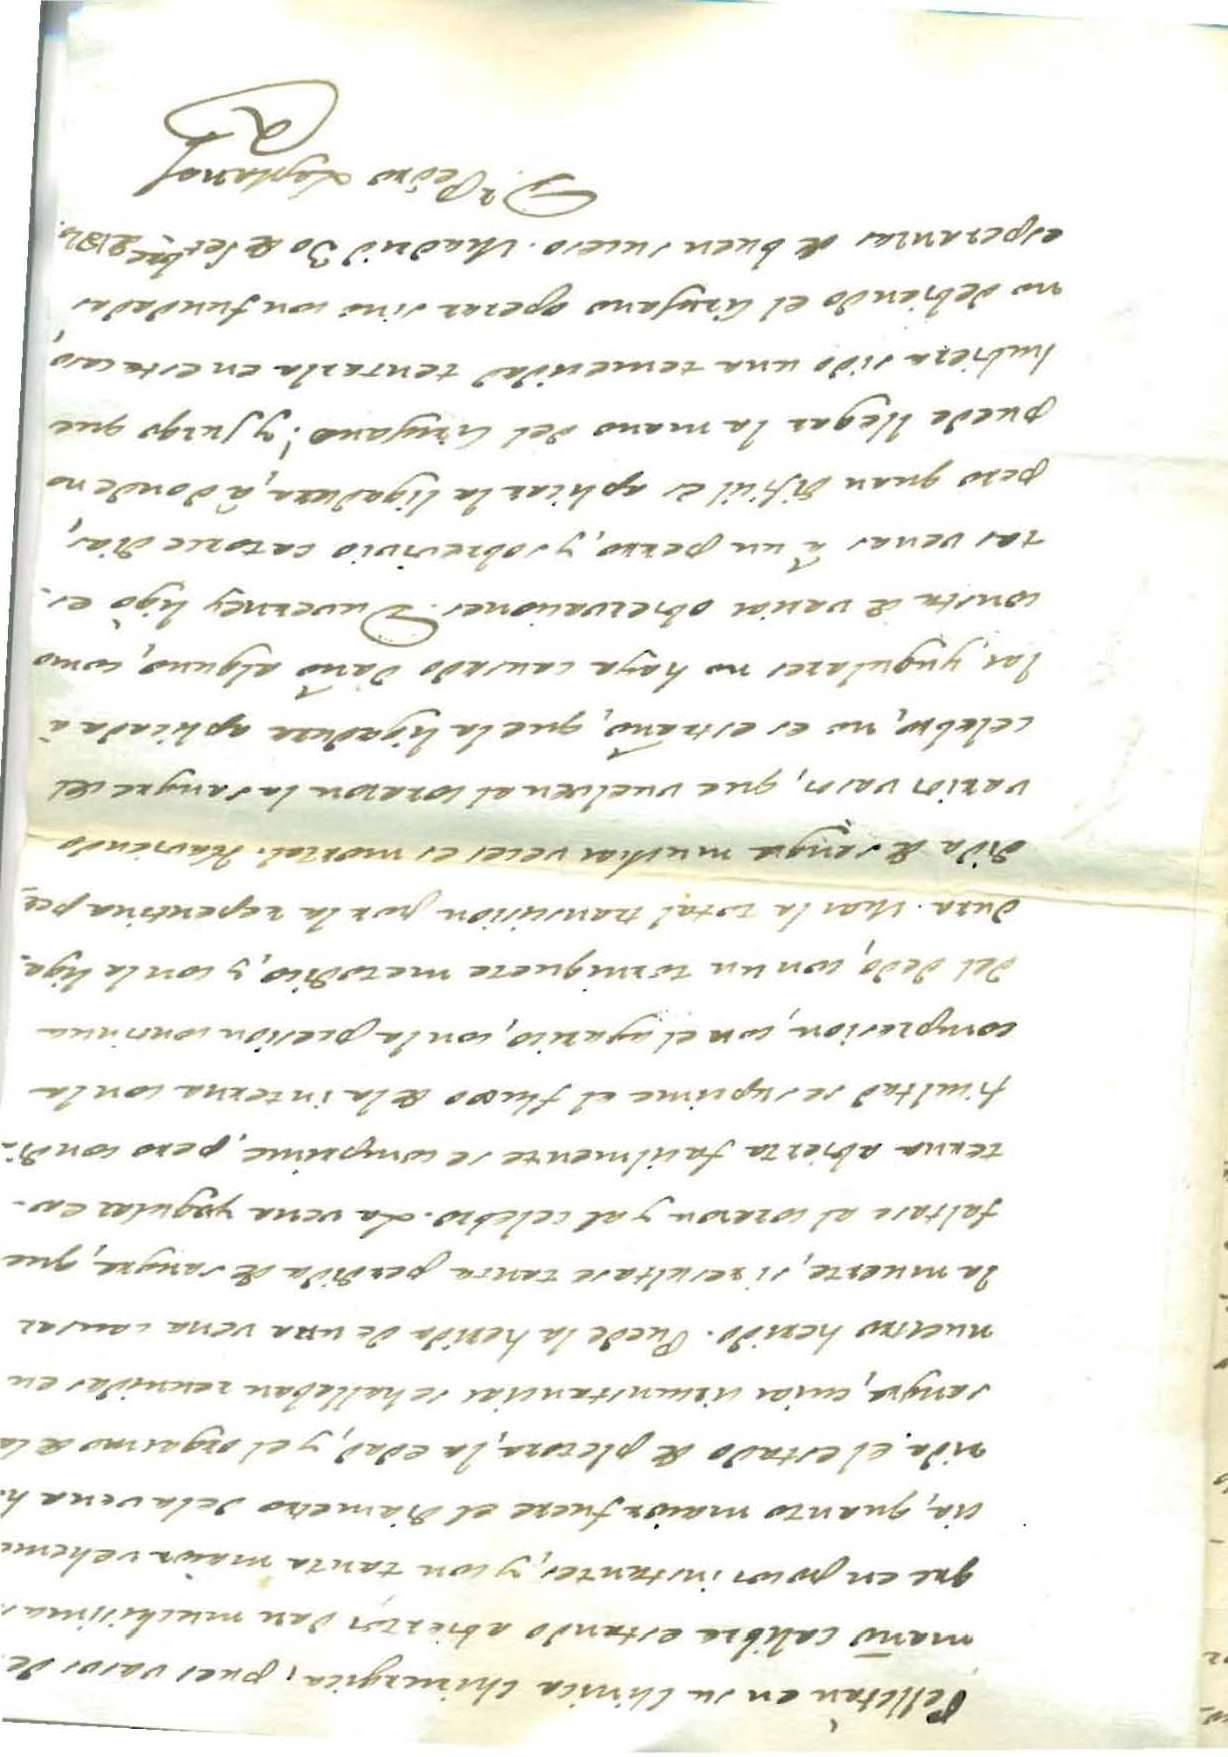 Pelletan en su Clinica Chirurgica; pues vasos de
maño calibre estando abiertos dan muchisima
gre en pocos instantes, y con tanta maior vehemen
cia, quanto maior fuere el diametro de la vena h
rida, el estado de pletora, la edad, y el orgasmo de la
sangre, cuias circunstancias se hallaban reunidas en
nuestro herido. Puede la herida de una vena causar
la muerte, si resultare tanta perdida de sangre, que
faltase al corazon y al celebro. La vena yugular ex-
terna abierta facilmente se comprime, pero con di-
ficultad se suprime el fluxo de la interna con la
compresion, con el agarico, con la presion continua
del dedo, con un torniquete metodico, y con la liga-
dura. Mas la total transicion por la repentina per-
dida de sangre muchas veces es mortal. Haviendo
varios vasos, que vuelven al corazon la sangre del
celebro, no es estraño, que la ligadura aplicada à
las yugulares no haya causado daño alguno, como
consta de varias observaciones. Duverney ligò es-
tas venas à un perro, y sobrevivio catorce dias,
pero quan dificil es aplicar la ligadura, à donde no
puede llegar la mano del Cirujano! y juzgo que
hubiera sido una temeridad tentarla en este caso,
no debiendo el Cirujano operar sino con fundadas
esperanzas de buen suceso. Madrid 30 de Setbre
Dr. Pedro